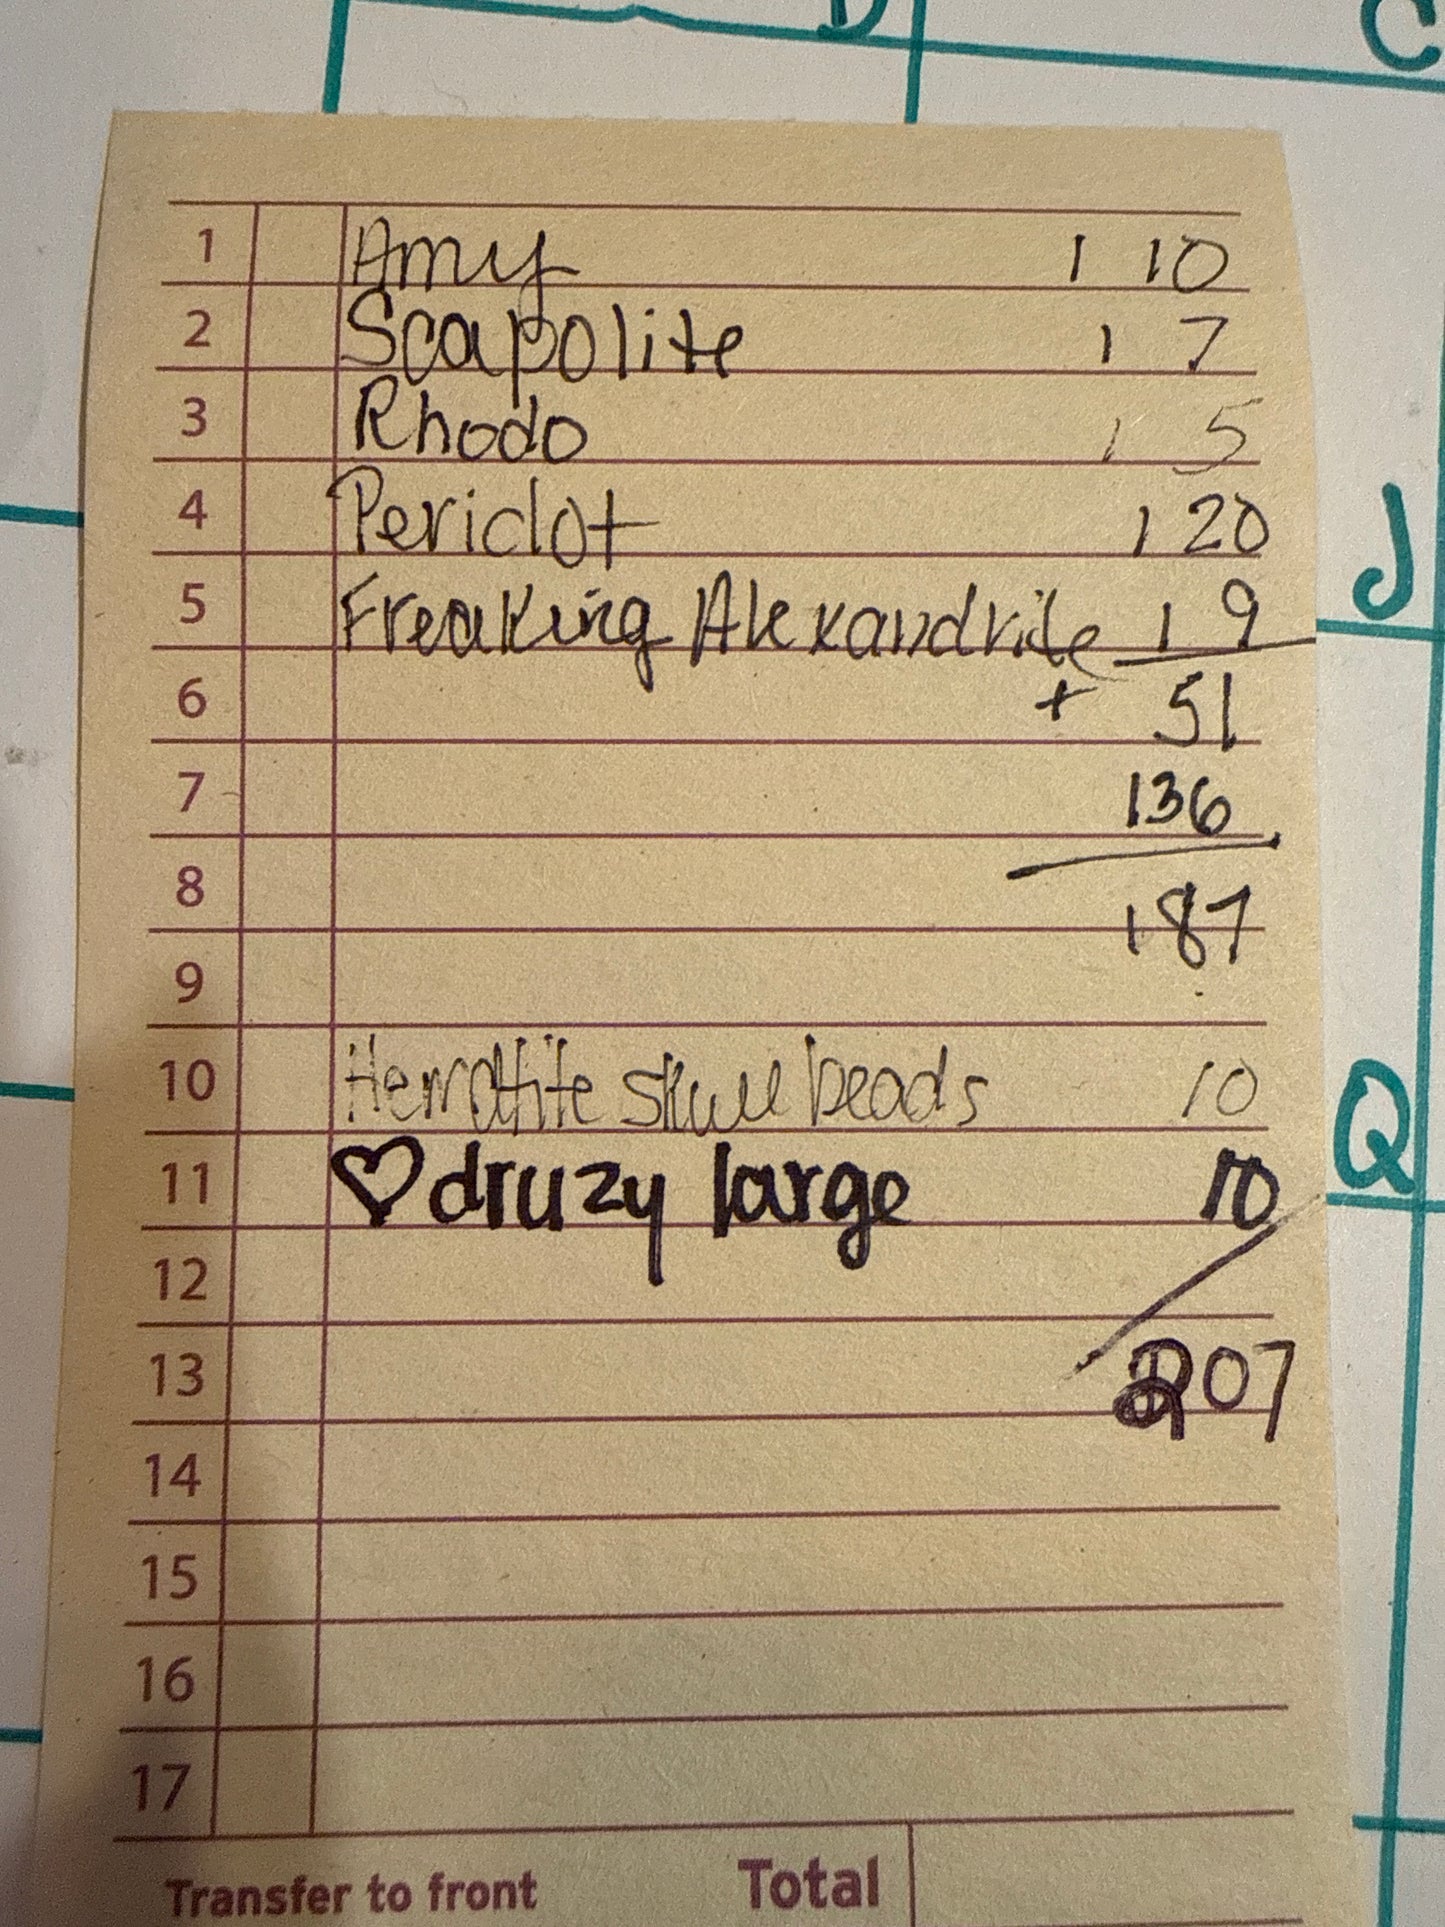 D
C
1 Amy 1 10
2 Scapolite 1 7
3 Rhodo 1 5
4 Peridot 1 20
J
5 Freaking Alexandrite 1 9
6 + 51
7 136
8 187
9
10 Hematite skull beads 10
Q
11 ♡ druzy large 10
12
13 207
14
15
16
17
Transfer to front Total